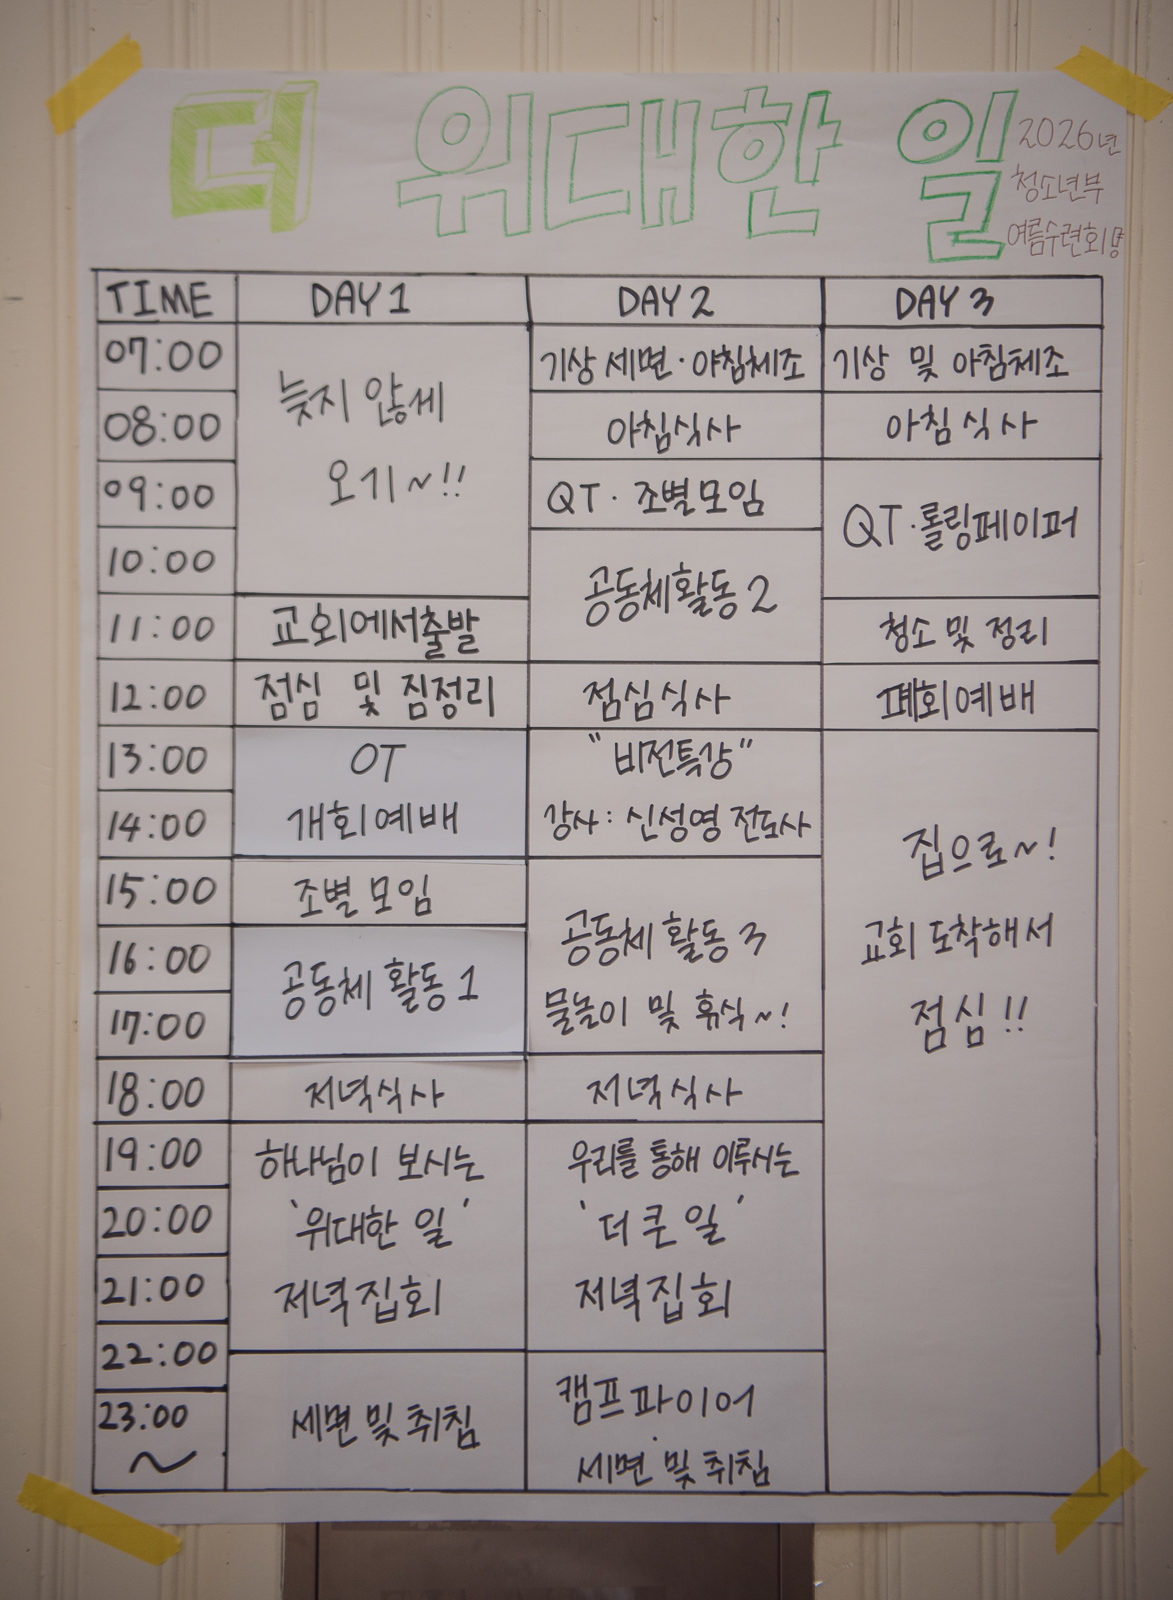 더 위대한 일
2026년
청소년부
여름수련회
TIME DAY 1 DAY 2 DAY 3
07:00 기상 세면·아침체조 기상 및 아침체조
늦지 않게
08:00 아침식사 아침식사
오기~!!
09:00 QT·조별모임
QT·롤링페이퍼
10:00 공동체활동 2
11:00 교회에서출발 청소 및 정리
12:00 점심 및 짐정리 점심식사 폐회예배
13:00 OT "비전특강"
14:00 개회예배 강사: 신성영 전도사
집으로~!
15:00 조별 모임
공동체 활동 3 교회 도착해서
16:00 공동체 활동 1
17:00 물놀이 및 휴식~! 점심!!
18:00 저녁식사 저녁식사
19:00 하나님이 보시는 우리를 통해 이루시는
20:00 '위대한 일' '더 큰 일'
21:00 저녁집회 저녁집회
22:00
23:00 세면 및 취침 캠프파이어
~ 세면 및 취침